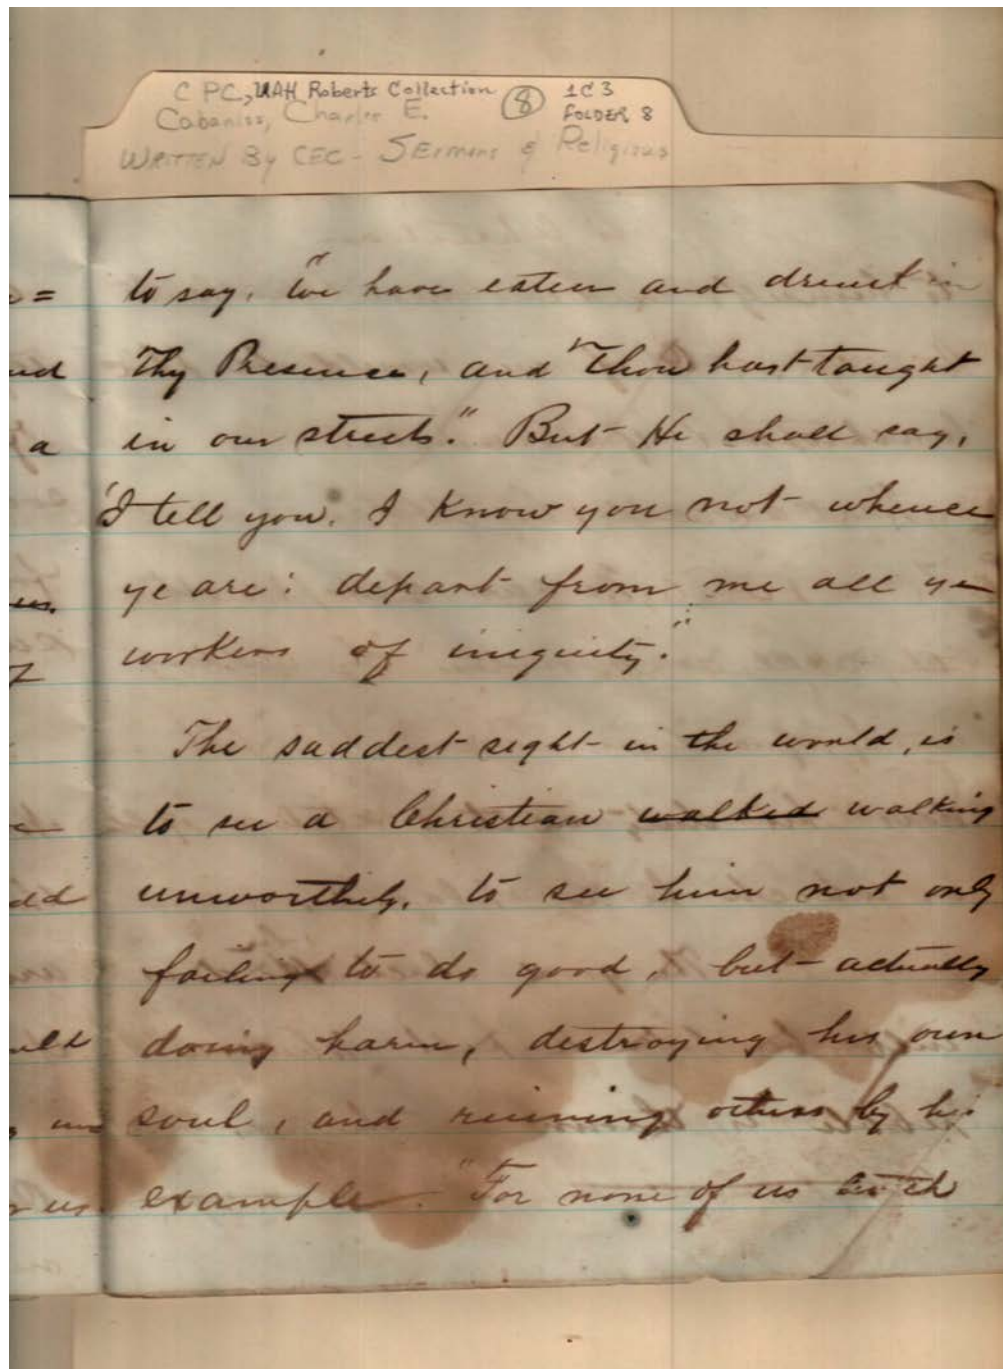 C PC, UAH Roberts Collection (8) 1C3
Cabaniss, Charles E. FOLDER 8
WRITTEN By CEC - SErmons & Religious
to say, "We have eaten and drunk in
Thy Presence, and "Thou hast taught
in our streets." But He shall say,
'I tell you. I Know you not whence
ye are: depart from me all ye
workers of iniquity."
The saddest sight in the world, is
to see a Christian walked walking
unworthily, to see him not only
failing to do good, but actually
doing harm, destroying his own
soul, and ruining others by his
example. "For none of us liveth